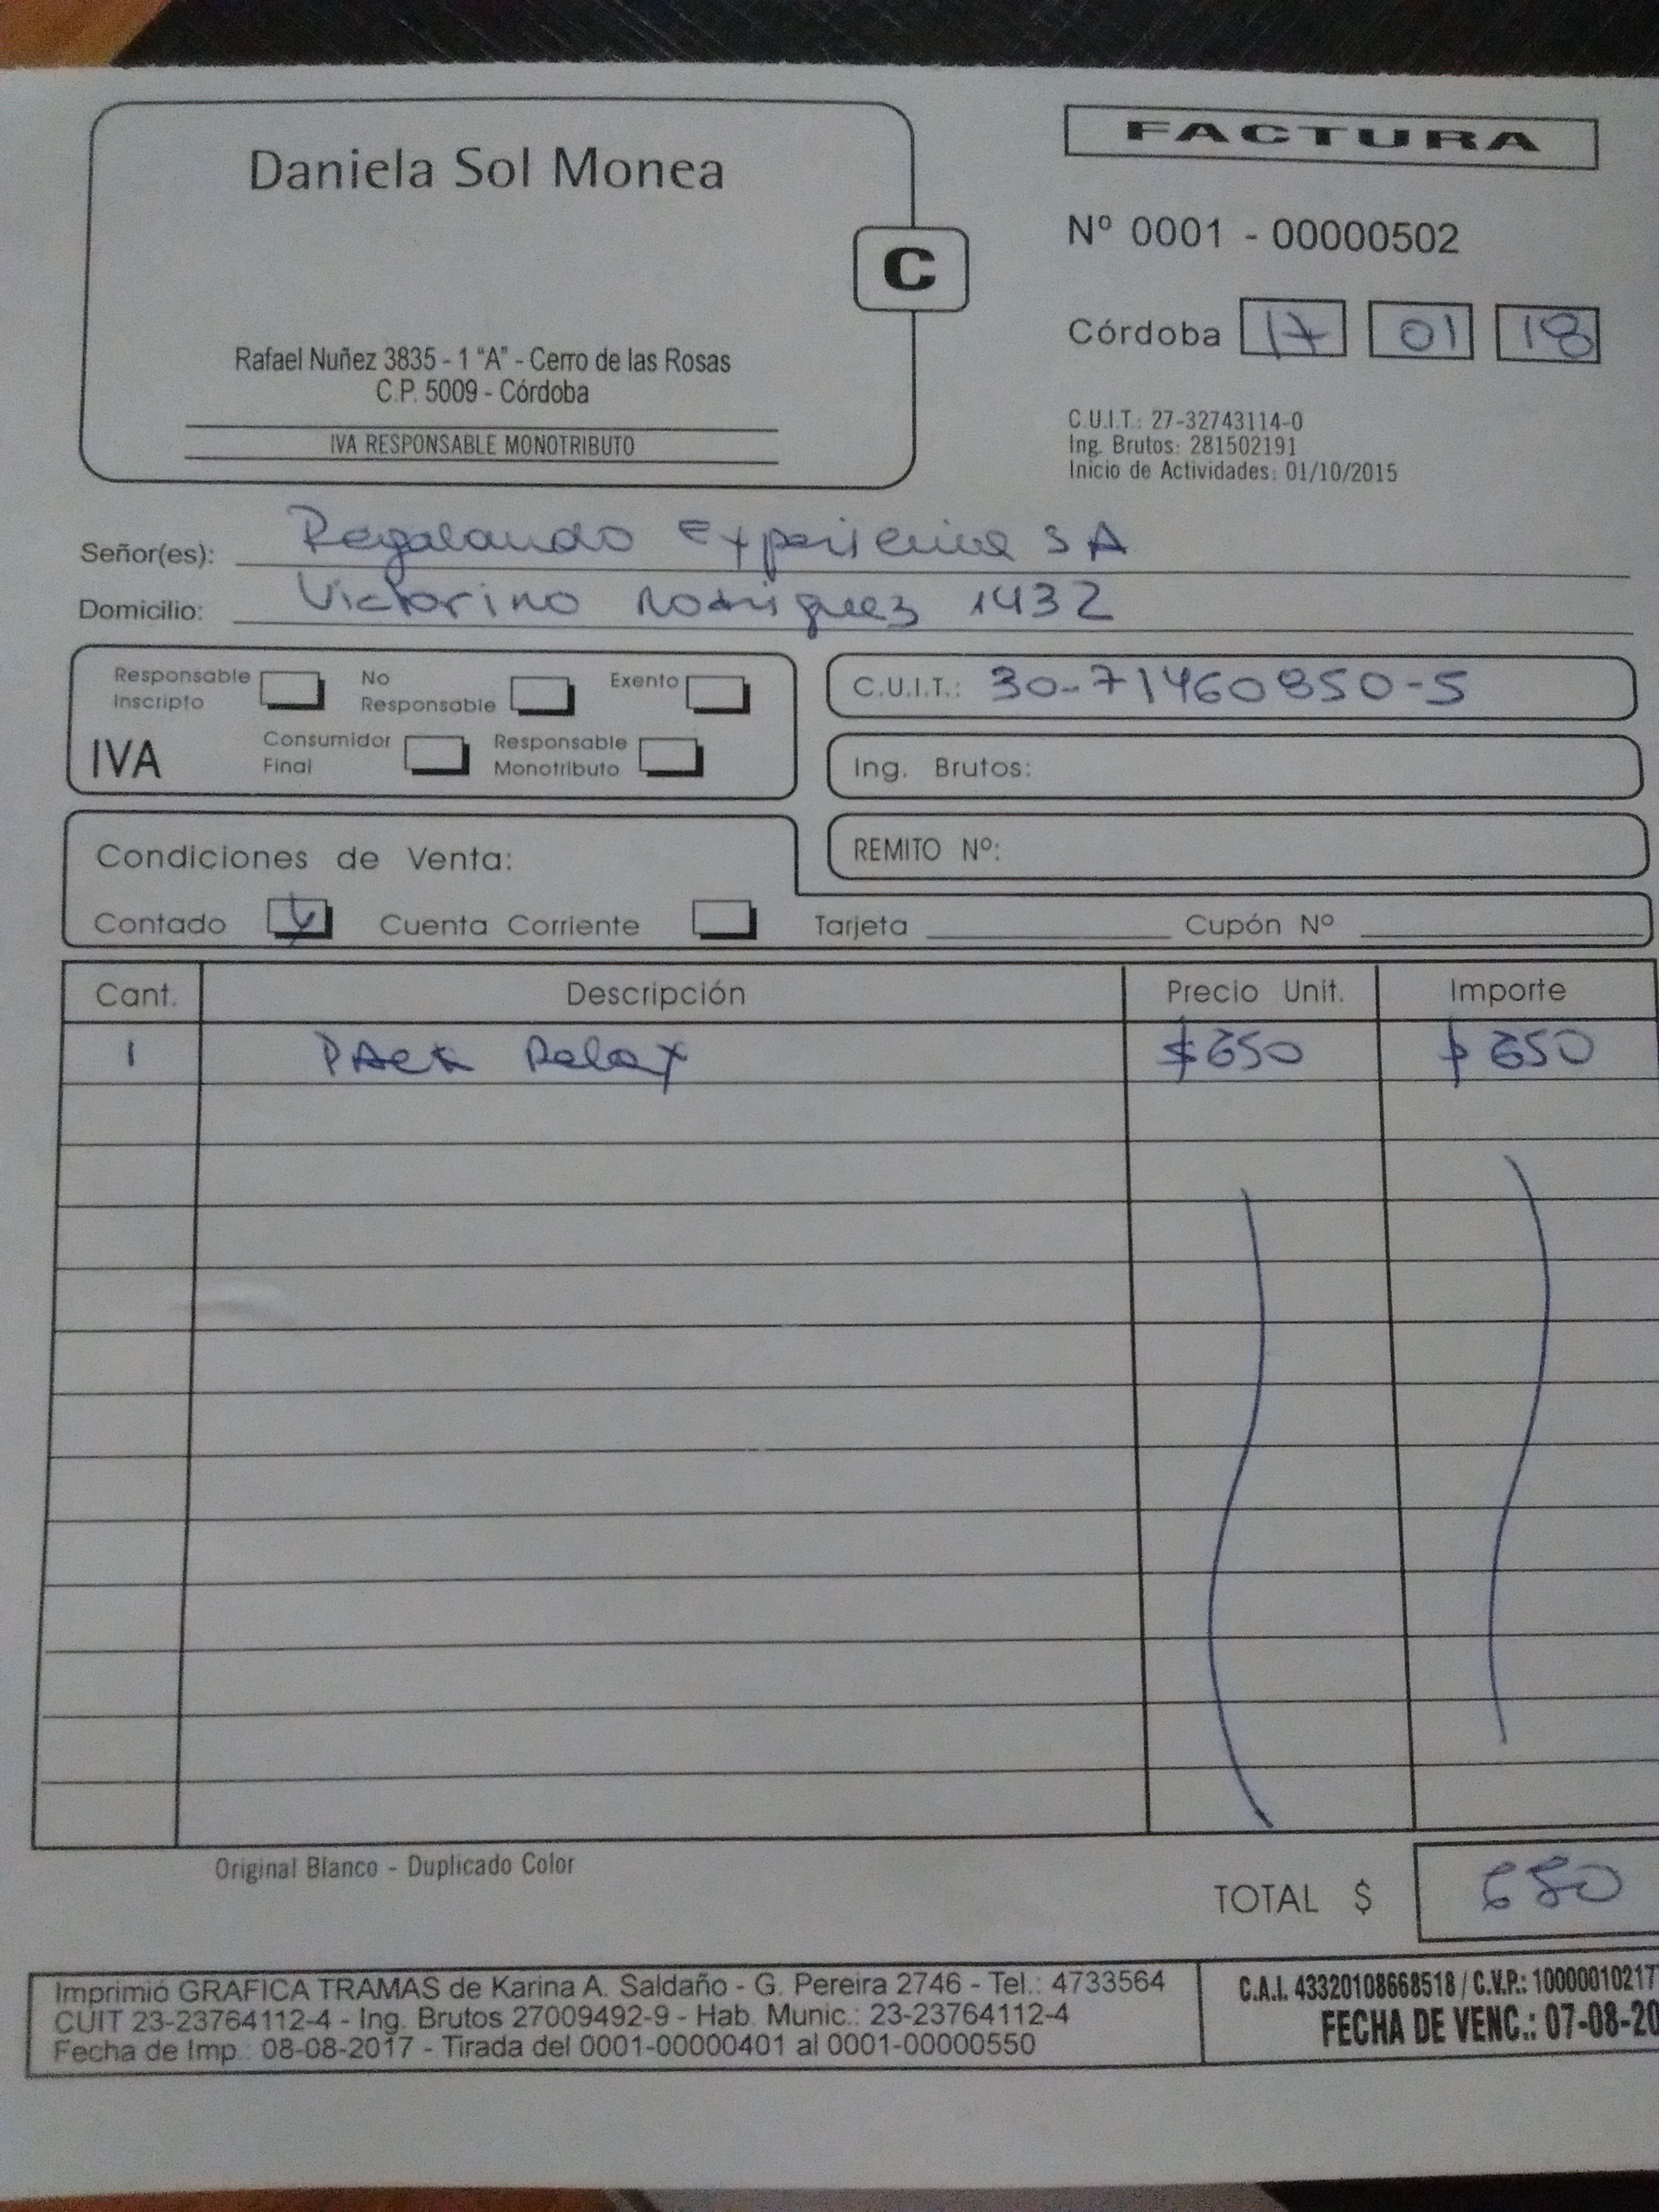 Daniela Sol Monea
Rafael Nuñez 3835 - 1 "A" - Cerro de las Rosas
C.P. 5009 - Córdoba
IVA RESPONSABLE MONOTRIBUTO
C
FACTURA
Nº 0001 - 00000502
Córdoba 17 01 18
C.U.I.T.: 27-32743114-0
Ing. Brutos: 281502191
Inicio de Actividades: 01/10/2015
Señor(es): Regalando Experiencia SA
Domicilio: Victorino Rodriguez 1432
Responsable Inscripto No Responsable Exento
IVA Consumidor Final Responsable Monotributo
C.U.I.T.: 30-71460850-5
Ing. Brutos:
REMITO Nº:
Condiciones de Venta:
Contado Cuenta Corriente Tarjeta Cupón Nº
Cant. Descripción Precio Unit. Importe
1 PACK Relax $650 $650
Original Blanco - Duplicado Color
TOTAL $ 650
Imprimió GRAFICA TRAMAS de Karina A. Saldaño - G. Pereira 2746 - Tel.: 4733564
CUIT 23-23764112-4 - Ing. Brutos 27009492-9 - Hab. Munic.: 23-23764112-4
Fecha de Imp.: 08-08-2017 - Tirada del 0001-00000401 al 0001-00000550
C.A.I. 43320108668518 / C.V.P.: 10000010217
FECHA DE VENC.: 07-08-20